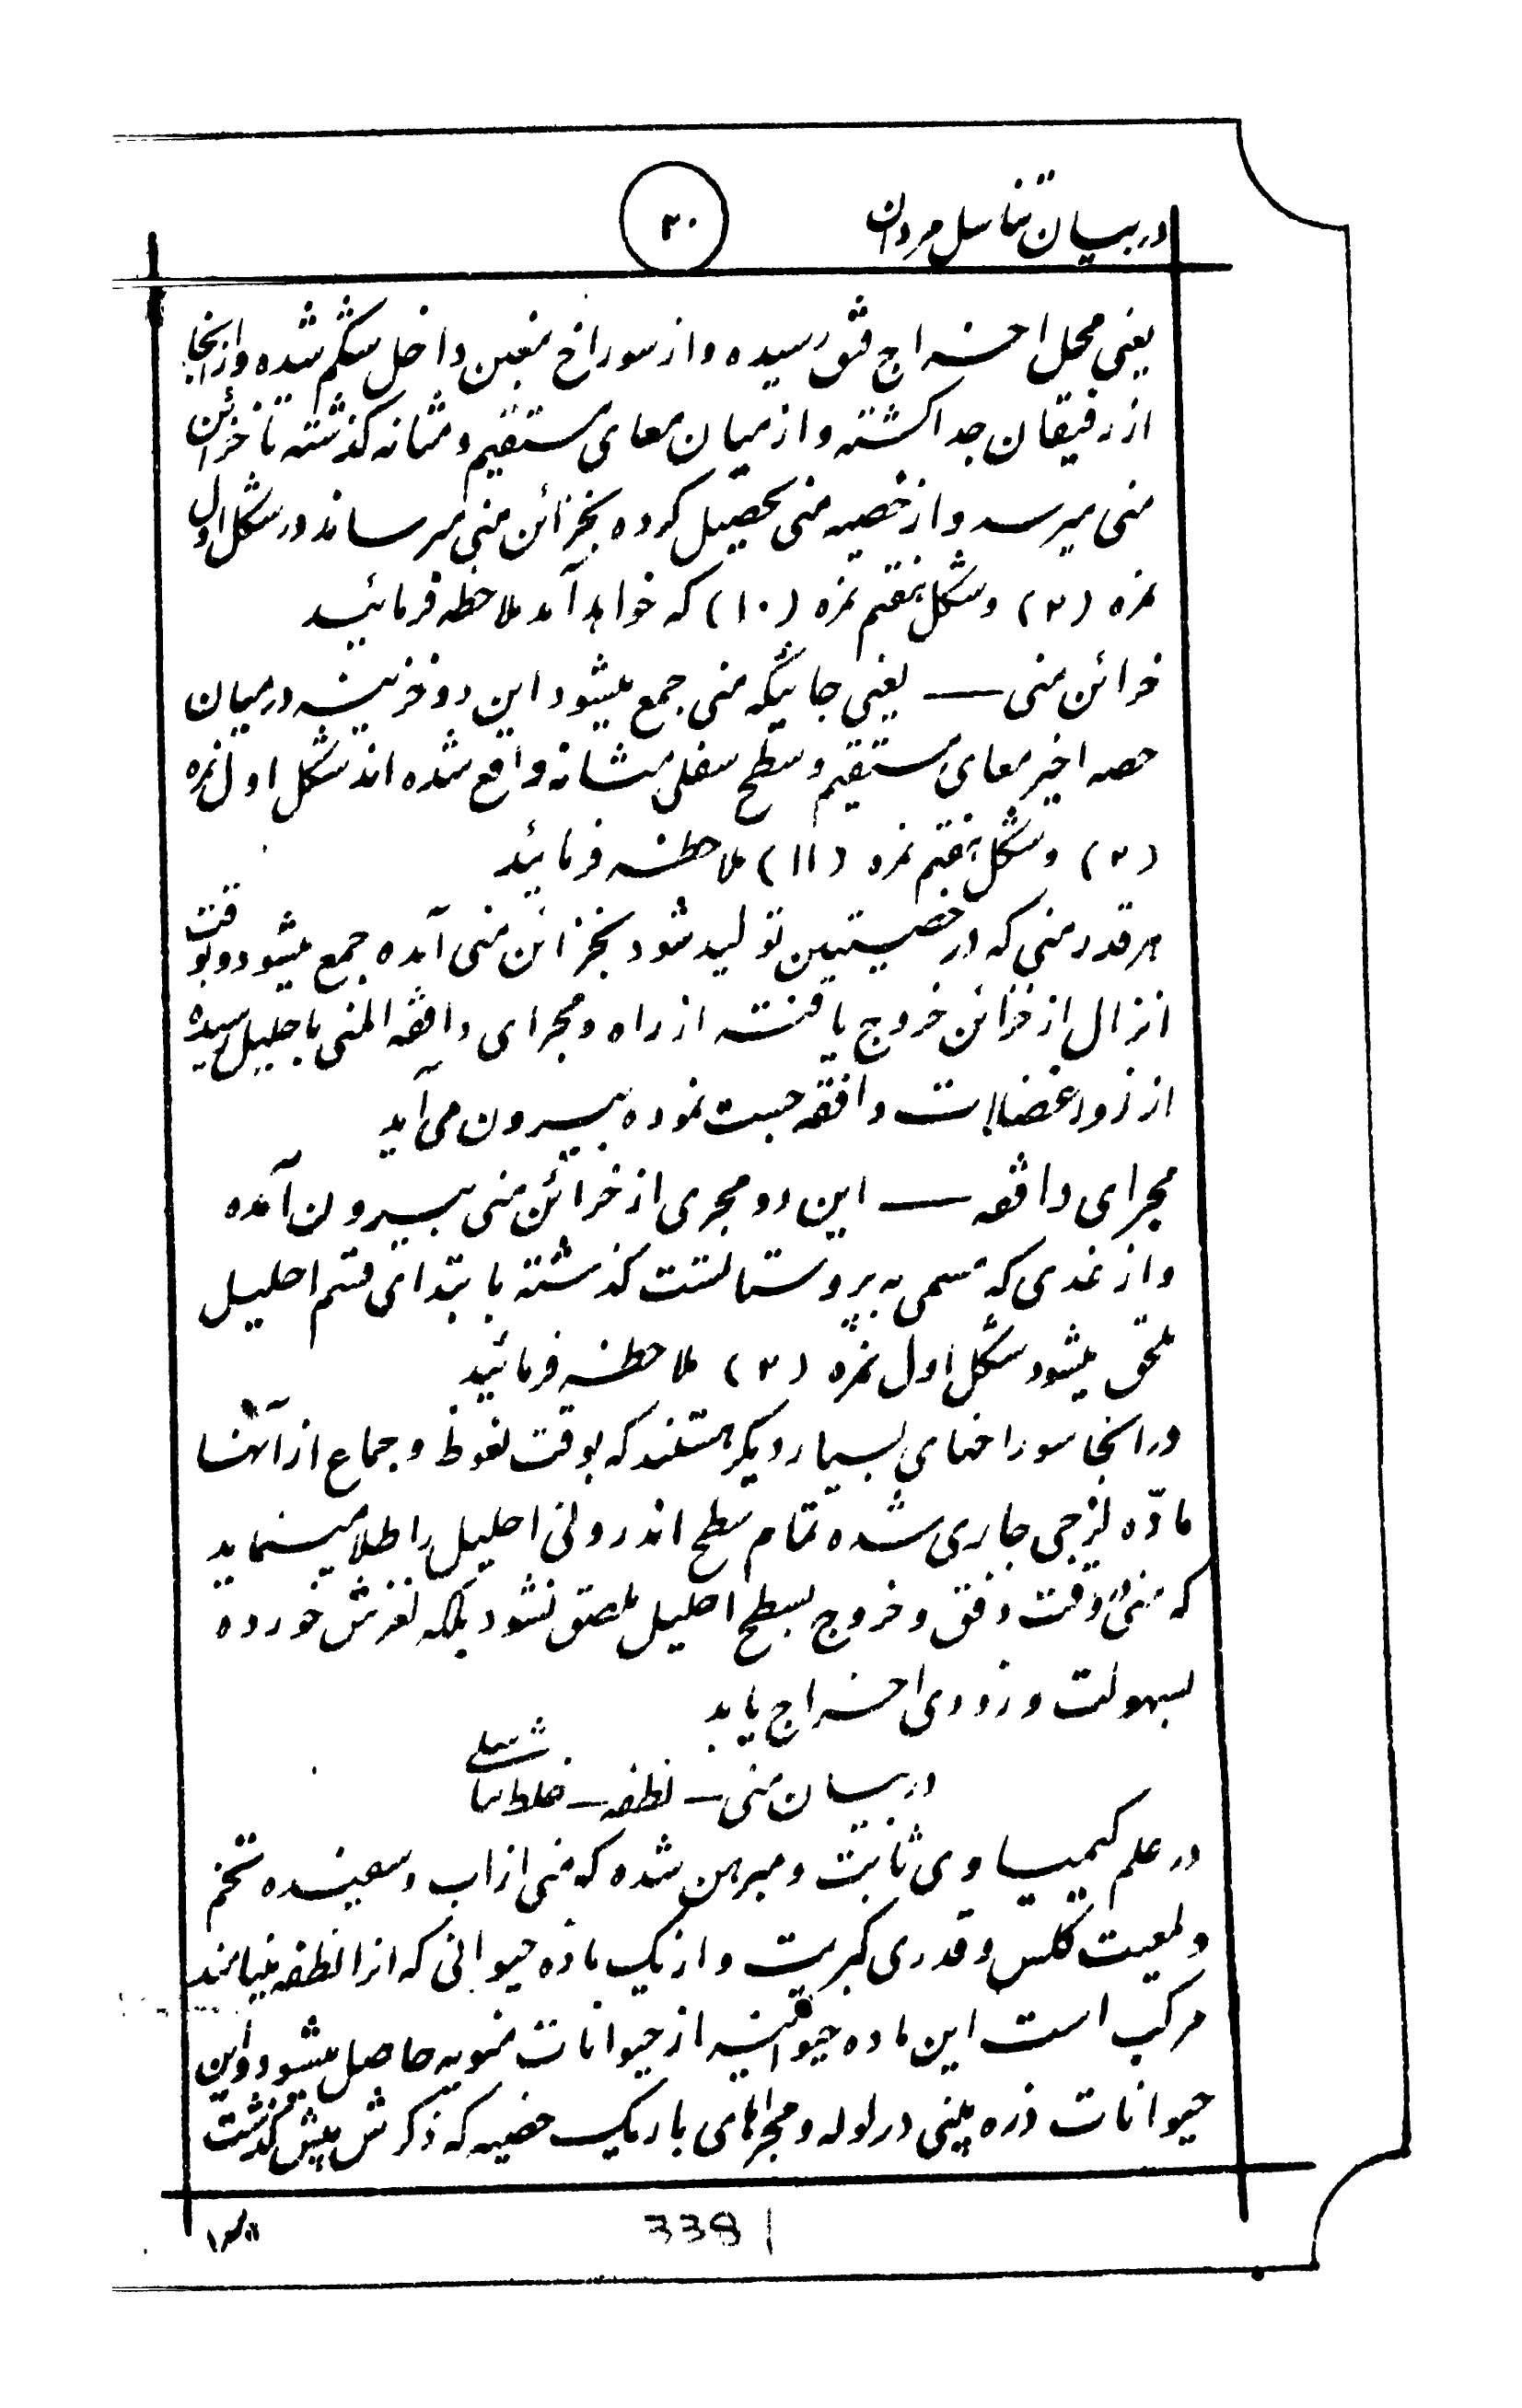 در بیان تناسل مردان
۲۰
یعنی محل اخراج فتق رسیده و از سوراخ نبغین داخل شکم شده و از اینجا
از رفیقان جدا گشته و از میان معای مستقیم و مثانه گذشته تا خزائن
منی میرسد و از خصیه منی تحصیل کرده بخزائن منی میرساند در شکل اول
نمره (۲) و شکل هفتم نمره (۱۰) که خواهد آمد ملاحظه فرمائید
خزائن منی — یعنی جائیکه منی جمع میشود این دو خزینه در میان
حصه اخیر معای مستقیم و سطح سفلی مثانه واقع شده اند شکل اول نمره
(۲) و شکل هفتم نمره (۱۱) ملاحظه فرمائید
هر قدر منی که در خصیتین تولید شود بخزائن منی آمده جمع میشود و بوقت
انزال از خزائن خروج یافته از راه و مجرای دافقه المنی باحلیل رسیده
از زور عضلات دافقه جست نموده بیرون می آید
مجرای دافقه — این دو مجری از خزائن منی بیرون آمده
و از غدی که مسمی به پروستاتست گذشته بابتدای قسم احلیل
ملحق میشود شکل اول نمره (۳) ملاحظه فرمائید
در اینجا سوراخهای بسیار دیگر هستند که بوقت نعوظ و جماع از آنها
مادّه لزجی جاری شده تمام سطح اندرونی احلیل را طلا مینماید
که منی وقت دفق و خروج بسطح احلیل ملصق نشود بلکه لغزش خورده
بسهولت و زودی اخراج یابد
در بیان منی — نطفه — خلط تناسلی
در علم کیمیاوی ثابت و مبرهن شده که منی از اب و سفیده تخم
و لعیت کلس و قدری کبریت و از یک ماده حیوانی که انرا نطفه مینامند
مرکب است این ماده حیوانیه از حیوانات منویه حاصل میشود و این
حیوانات ذره بینی در لوله و مجراهای باریک خصیه که ذکرش پیش گذشت
338